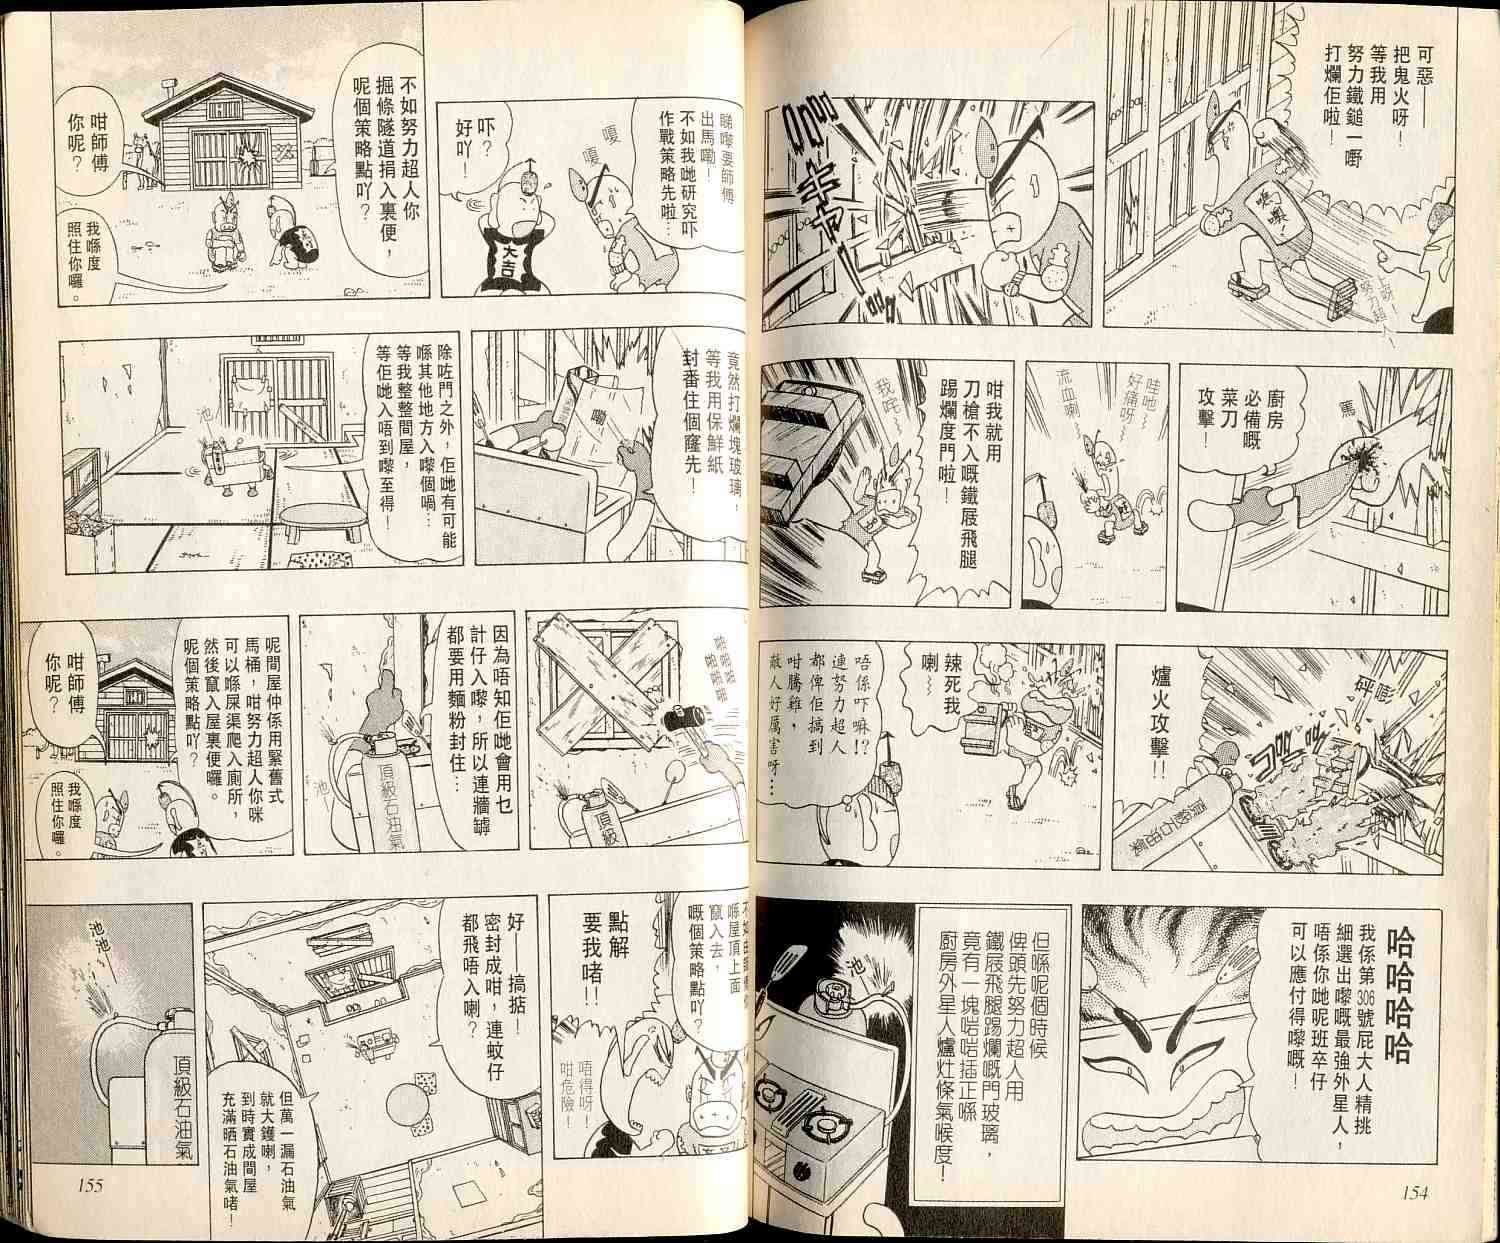 可惡——
把鬼火呀！
等我用
努力鐵鎚一嘢
打爛佢啦！
嗚嘰！
廚房
必備嘅
菜刀
攻擊！
篤
哇吔~
好痛呀~
流血喇~
咁我就用
刀槍不入嘅鐵屐飛腿
踢爛度門啦！
我咤~
爐火攻擊！！
砰嘭
辣死我
喇~
唔係吓嘛!?
連努力超人
都俾佢搞到
咁騰雞，
敵人好厲害呀…
哈哈哈哈
我係第306號屁大人精挑
細選出嚟嘅最強外星人，
唔係你哋呢班卒仔
可以應付得嚟嘅！
但喺呢個時候
俾頭先努力超人用
鐵屐飛腿踢爛嘅門玻璃，
竟有一塊啱啱插正喺
廚房外星人爐灶條氣喉度！
池~
154
睇嚟要師傅
出馬嘞！
不如我哋研究吓
作戰策略先啦…
嗄
嗄
吓？
好吖！
大吉
不如努力超人你
掘條隧道捐入裏便，
呢個策略點吖？
咁師傅
你呢？
我喺度
照住你囉。
竟然打爛塊玻璃，
等我用保鮮紙
封番住個窿先！
除咗門之外，佢哋有可能
喺其他地方入嚟個喎…
等我整整間屋，
等佢哋入唔到嚟至得！
池
啪啪啪
啪啪啪
頂級
因為唔知佢哋會用乜
計仔入嚟，所以連牆罅
都要用麵粉封住…
池~
頂級石油氣
呢間屋仲係用緊舊式
馬桶，咁努力超人你咪
可以喺屎渠爬入廁所，
然後竄入屋裏便囉。
呢個策略點吖？
咁師傅
你呢？
我喺度
照住你囉。
喺屋頂上面
竄入去，
嘅個策略點吖？
點解
要我啫！！
唔得呀！
咁危險！
好——搞掂！
密封成咁，連蚊仔
都飛唔入喇？
但萬一漏石油氣
就大鑊喇，
到時實成間屋
充滿晒石油氣啫！
池池——
頂級石油氣
155